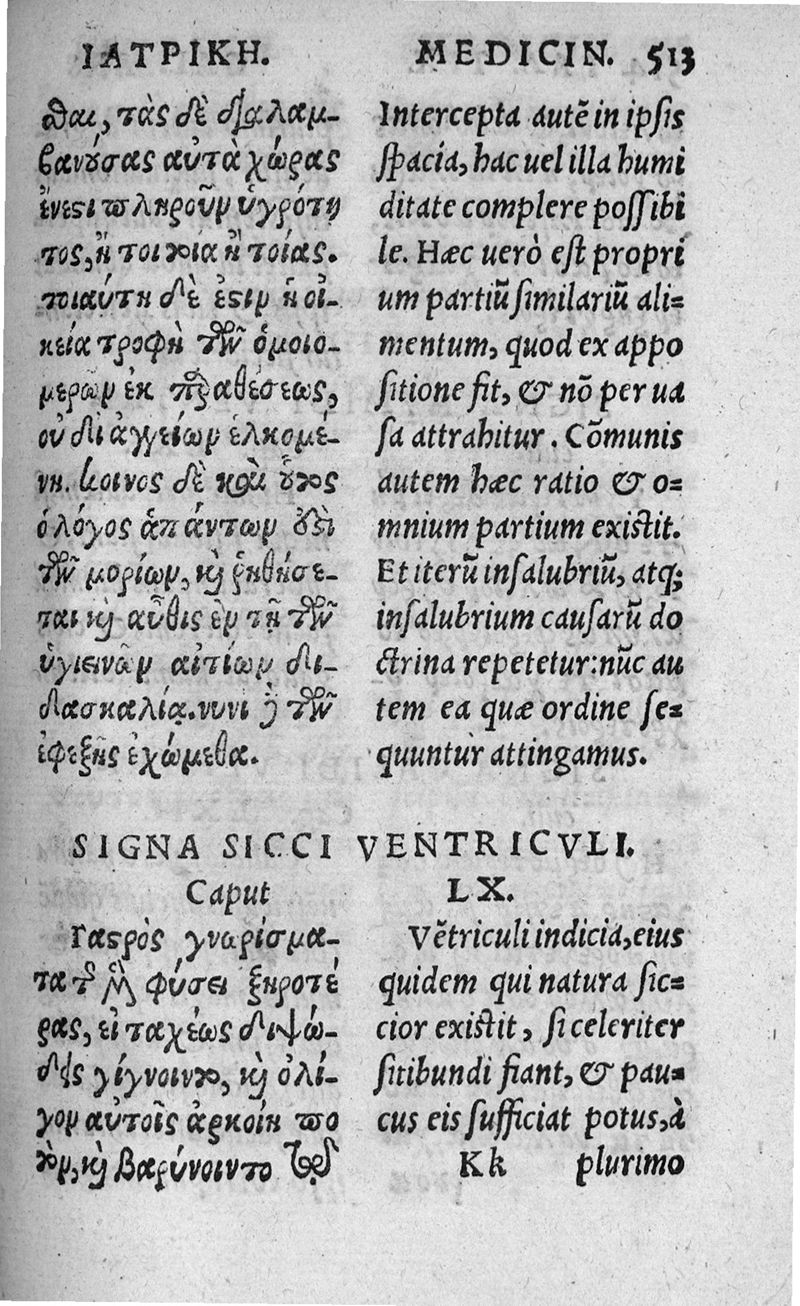 ΙΑΤΡΙΚΗ.
θαι, τὰς δὲ διαλαμ-
βανούσας αὐτὰ χώρας
ἔνεστι πληροῦν ὑγρότη
τος, ἢ τοιᾶσδε ἢ τοίας.
τοιαύτη δὲ ἐστὶν ἡ οἰ-
κεία τροφὴ τῶν ὁμοιο-
μερῶν ἐκ παραθέσεως,
οὐ δι ἀγγείων ἑλκομέ-
νη. κοινὸς δὲ καὶ οὗτος
ὁ λόγος ἁπάντων ἐπὶ
τῶν μορίων, καὶ ῥηθήσε-
ται καὶ αὖθις ἐν τῇ τῶν
ὑγιεινῶν αἰτίων δι-
δασκαλίᾳ. νυνὶ δὲ τῶν
ἐφεξῆς ἐχώμεθα.
MEDICIN. 513
Intercepta autẽ in ipsis
spacia, hac uel illa humi
ditate complere possibi
le. Hæc uerò est propri
um partiũ similariũ ali=
mentum, quod ex appo
sitione fit, & nõ per ua
sa attrahitur. Cõmunis
autem hæc ratio & o=
mnium partium existit.
Et iterũ insalubriũ, atq;
insalubrium causarũ do
ctrina repetetur: nũc au
tem ea quæ ordine se=
quuntur attingamus.
SIGNA SICCI VENTRICVLI.
Caput LX.
Γαστρὸς γνωρίσμα-
τα τῆς μὲν φύσει ξηροτέ
ρας, εἰ ταχέως διψώ-
δεις γίγνοιντο, καὶ ὀλί-
γον αὐτοῖς ἀρκοίη πο
τὸν, καὶ βαρύνοιντο
Vẽtriculi indicia, eius
quidem qui natura sic=
cior existit, si celeriter
sitibundi fiant, & pau=
cus eis sufficiat potus, à
Kk plurimo